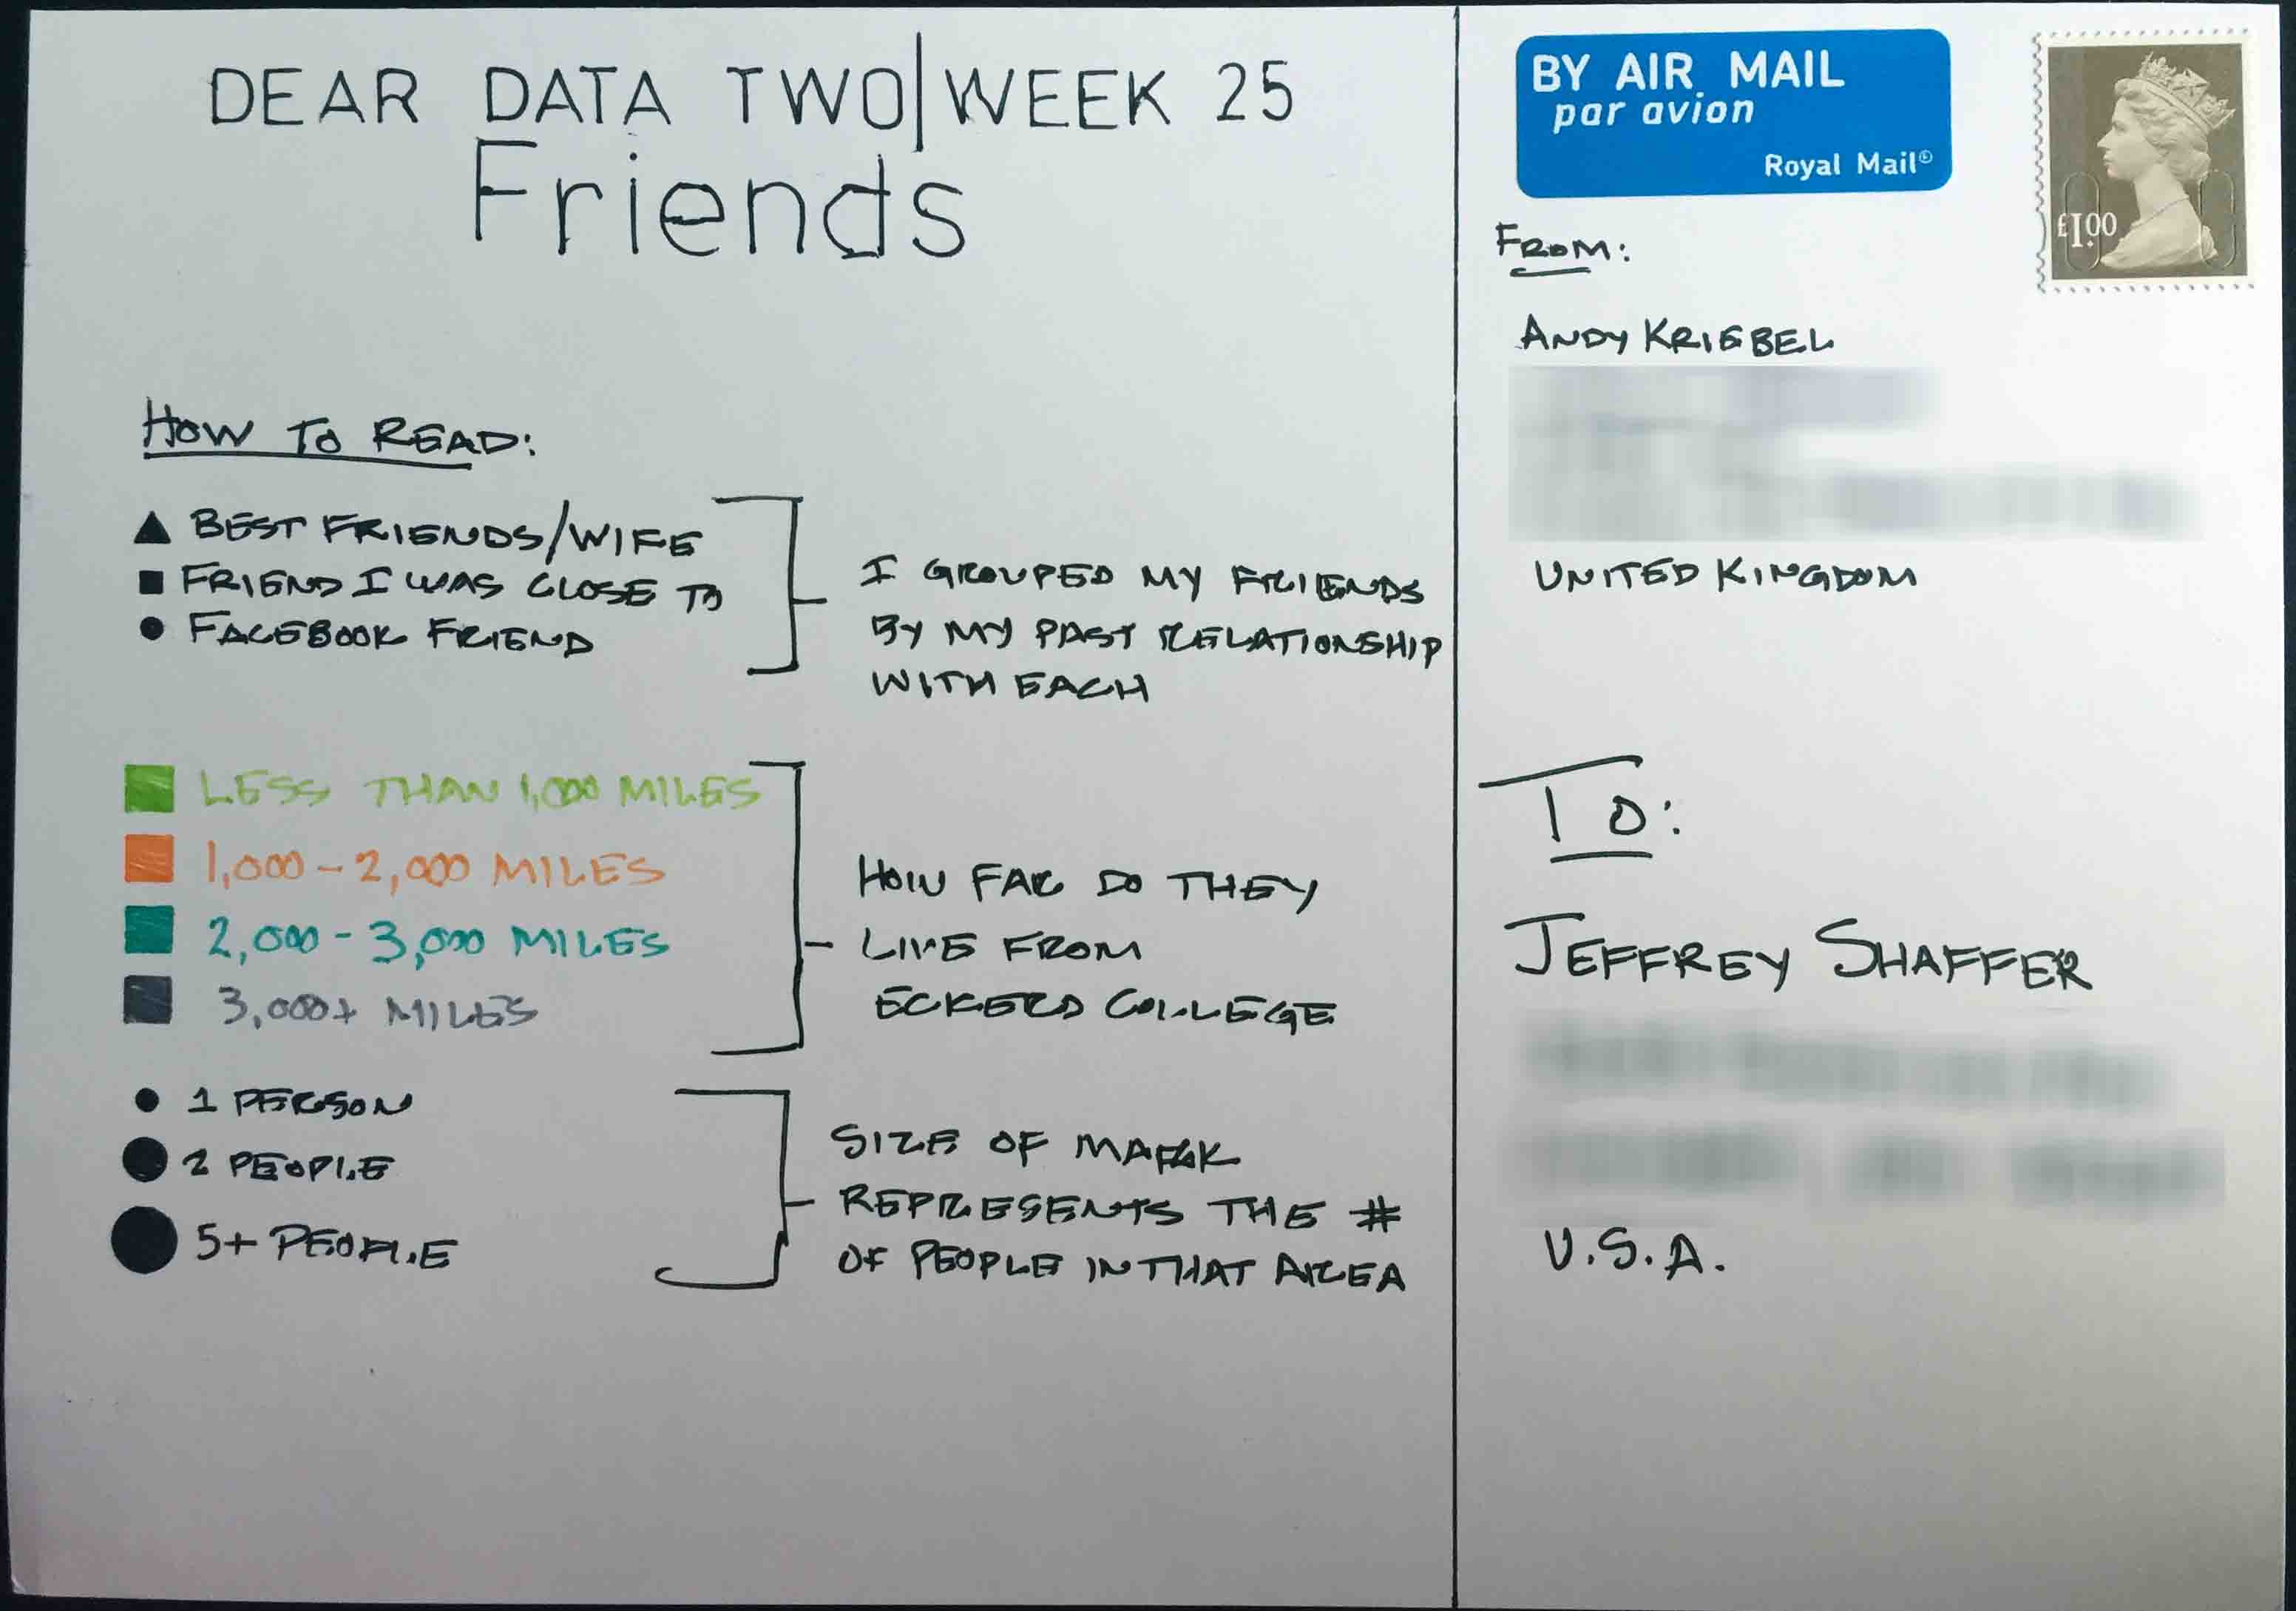 DEAR DATA TWO|WEEK 25
Friends
HOW TO READ:
▲ BEST FRIENDS/WIFE
■ FRIEND I WAS CLOSE TO
● FACEBOOK FRIEND
I GROUPED MY FRIENDS
BY MY PAST RELATIONSHIP
WITH EACH
LESS THAN 1,000 MILES
1,000 - 2,000 MILES
2,000 - 3,000 MILES
3,000+ MILES
HOW FAR DO THEY
LIVE FROM
ECKERD COLLEGE
1 PERSON
2 PEOPLE
5+ PEOPLE
SIZE OF MARK
REPRESENTS THE #
OF PEOPLE IN THAT AREA
BY AIR MAIL
par avion
Royal Mail®
£1.00
FROM:
ANDY KRIEBEL
UNITED KINGDOM
TO:
JEFFREY SHAFFER
U.S.A.